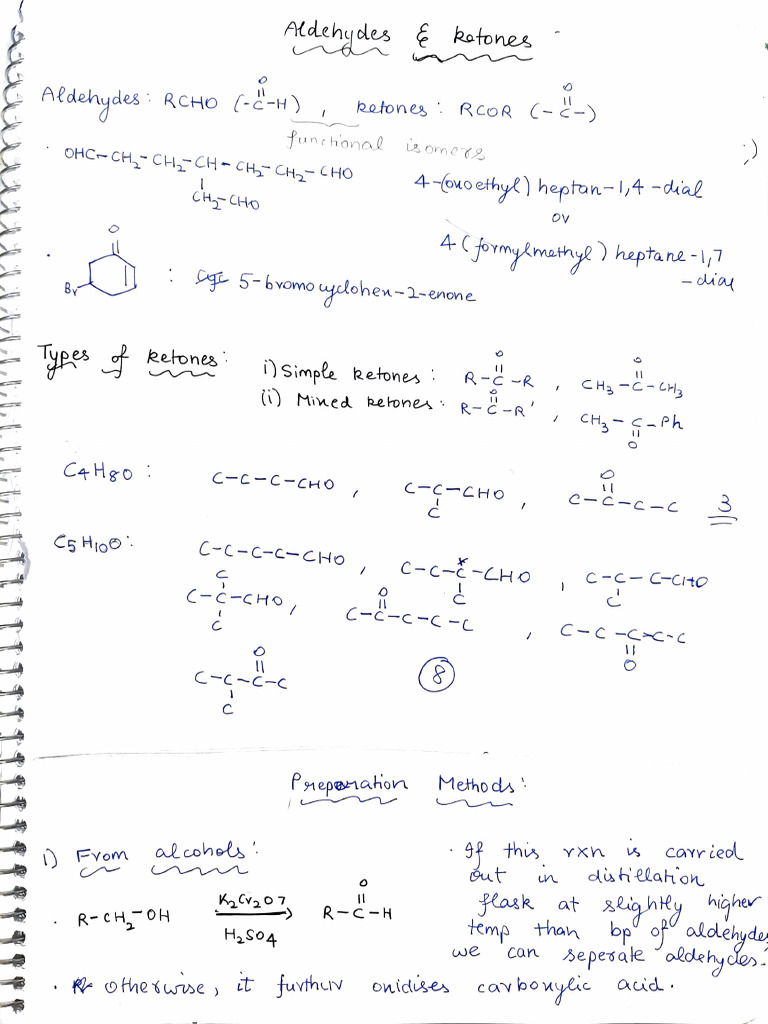 Aldehydes & ketones
Aldehydes: RCHO (-C-H), ketones: RCOR (-C-)
O O
functional isomers
OHC-CH2-CH2-CH-CH2-CH2-CHO
CH2-CHO
4-(oxoethyl) heptan-1,4-dial
or
4(formylmethyl) heptane-1,7
-dial
O
Br : 5-bromocyclohen-2-enone
Types of ketones: i) Simple ketones: R-C-R, CH3-C-CH3
O O
(ii) Mixed ketones: R-C-R', CH3-C-Ph
O O
C4H8O: C-C-C-CHO, C-C-CHO, C-C-C-C 3
C O
C5H10O: C-C-C-C-CHO, C-C-C*-CHO, C-C-C-CHO
C C
C
C-C-CHO, C-C-C-C-C, C-C-C-C-C
C O O
O
C-C-C-C 8
C
Preparation Methods:
1) From alcohols:
R-CH2-OH K2Cr2O7 R-C-H
H2SO4 O
· If this rxn is carried
out in distillation
flask at slightly higher
temp than bp of aldehydes
we can seperate aldehydes.
· otherwise, it further oxidises carboxylic acid.